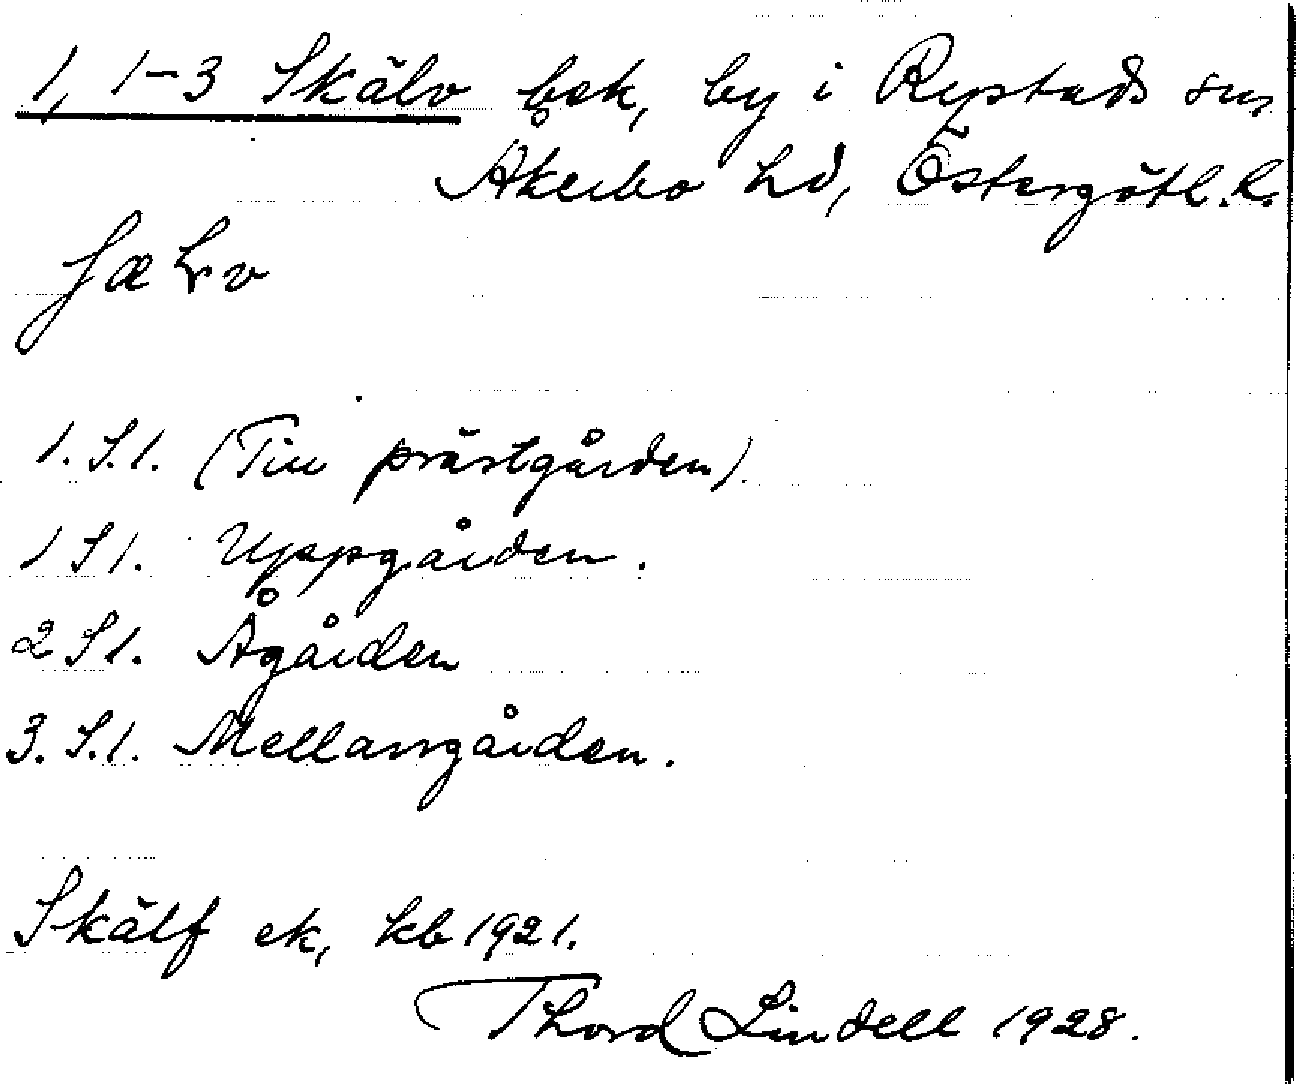 1, 1-3 Skälv bek, by i Rystads sn,
Åkerbo hd, Östergötl. l.
1. S.1. (Till prästgården).
1 S1. Uppgården.
2 S1. Ågården
3. S.1. Mellangården.
Skälf ek, kb 1921.
Thord Lindell 1928.